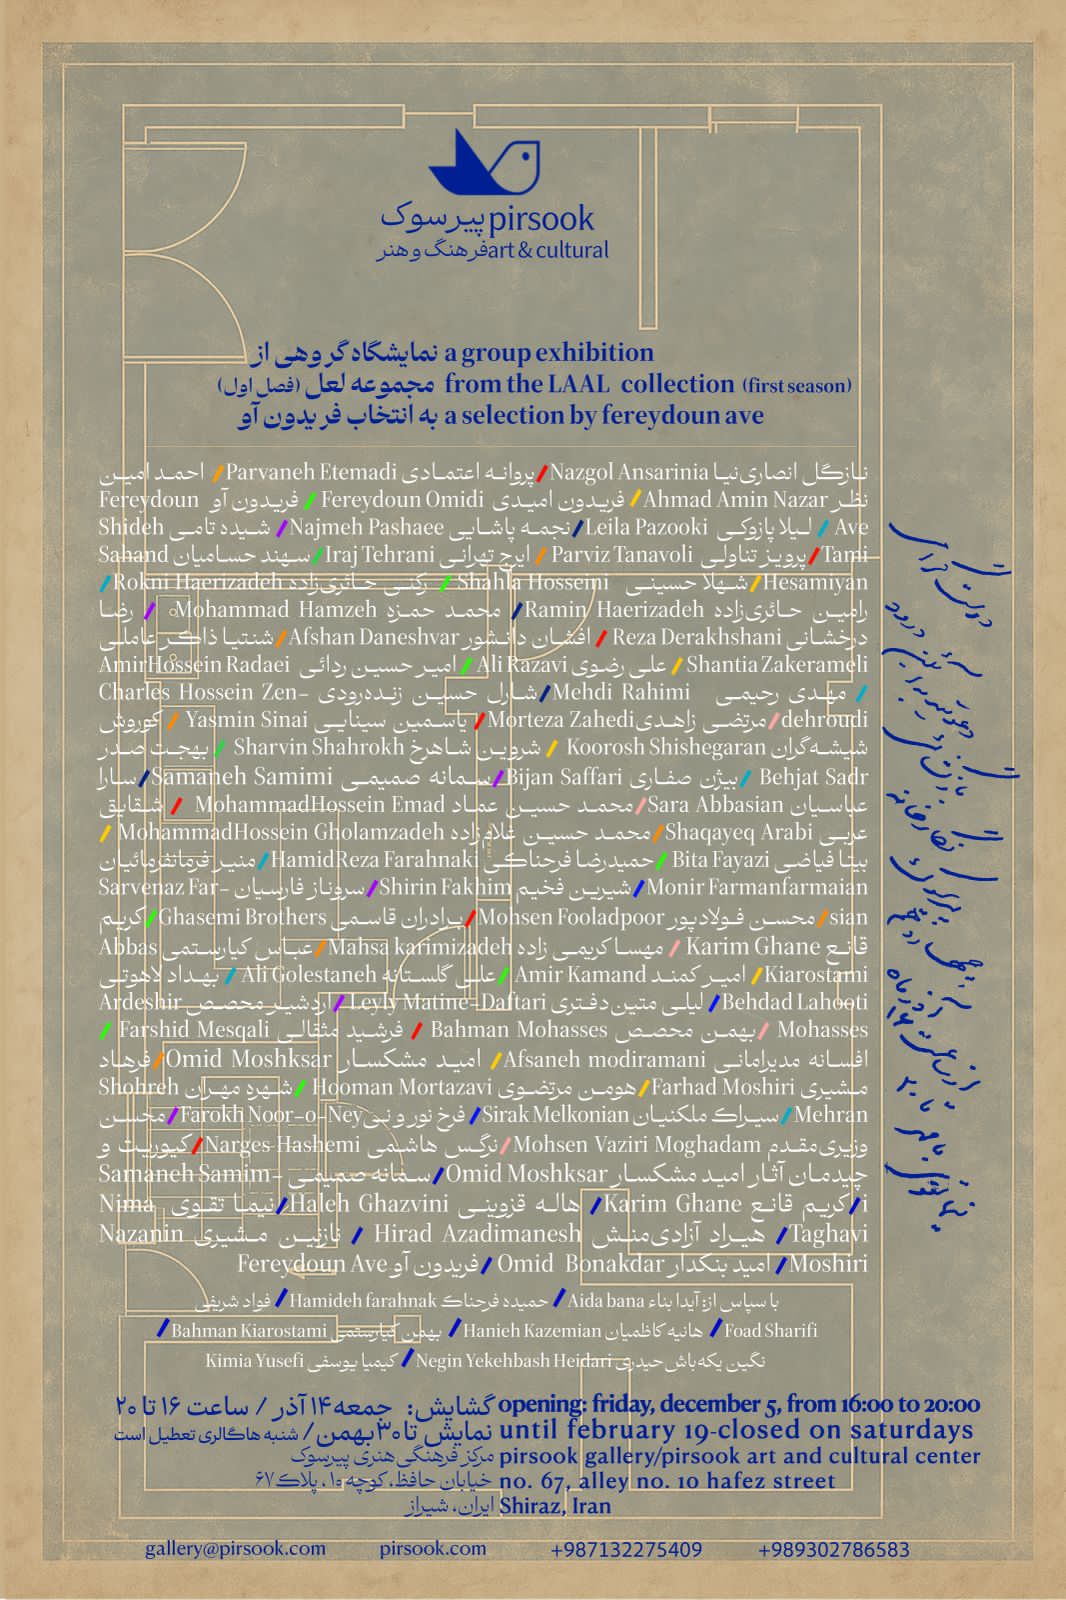 پیرسوک pirsook
فرهنگ و هنر art & cultural
نمایشگاه گروهی از a group exhibition
مجموعه لعل (فصل اول) from the LAAL collection (first season)
به انتخاب فریدون آو a selection by fereydoun ave
نازگل انصاری‌نیا Nazgol Ansarinia / پروانه اعتمادی Parvaneh Etemadi / احمد امین
نظر Ahmad Amin Nazar / فریدون امیدی Fereydoun Omidi / فریدون آو Fereydoun
Ave / لیلا پازوکی Leila Pazooki / نجمه پاشایی Najmeh Pashaee / شیده تامی Shideh
Tami / پرویز تناولی Parviz Tanavoli / ایرج تهرانی Iraj Tehrani / سهند حسامیان Sahand
Hesamiyan / شهلا حسینی Shahla Hosseini / رکنی حائری‌زاده Rokni Haerizadeh /
رامین حائری‌زاده Ramin Haerizadeh / محمد حمزه Mohammad Hamzeh / رضا
درخشانی Reza Derakhshani / افشان دانشور Afshan Daneshvar / شنتیا ذاکر عاملی
Shantia Zakerameli / علی رضوی Ali Razavi / امیر حسین ردائی AmirHossein Radaei
/ مهدی رحیمی Mehdi Rahimi / شارل حسین زنده‌رودی Charles Hossein Zen-
dehroudi / مرتضی زاهدی Morteza Zahedi / یاسمین سینایی Yasmin Sinai / کوروش
شیشه‌گران Koorosh Shishegaran / شروین شاهرخ Sharvin Shahrokh / بهجت صدر
Behjat Sadr / بیژن صفاری Bijan Saffari / سمانه صمیمی Samaneh Samimi / سارا
عباسیان Sara Abbasian / محمد حسین عماد MohammadHossein Emad / شقایق
عربی Shaqayeq Arabi / محمد حسین غلام‌زاده MohammadHossein Gholamzadeh /
بیتا فیاضی Bita Fayazi / حمیدرضا فرحناکی HamidReza Farahnaki / منیر فرمانفرمائیان
Monir Farmanfarmaian / شیرین فخیم Shirin Fakhim / سروناز فارسیان Sarvenaz Far-
sian / محسن فولادپور Mohsen Fooladpoor / برادران قاسمی Ghasemi Brothers / کریم
قانع Karim Ghane / مهسا کریمی زاده Mahsa karimizadeh / عباس کیارستمی Abbas
Kiarostami / امیر کمند Amir Kamand / علی گلستانه Ali Golestaneh / بهداد لاهوتی
Behdad Lahooti / لیلی متین دفتری Leyly Matine-Daftari / اردشیر محصص Ardeshir
Mohasses / بهمن محصص Bahman Mohasses / فرشید مثقالی Farshid Mesqali /
افسانه مدیرامانی Afsaneh modiramani / امید مشکسار Omid Moshksar / فرهاد
مشیری Farhad Moshiri / هومن مرتضوی Hooman Mortazavi / شهره مهران Shohreh
Mehran / سیراک ملکنیان Sirak Melkonian / فرخ نور و نی Farokh Noor-o-Ney / محسن
وزیری‌مقدم Mohsen Vaziri Moghadam / نرگس هاشمی Narges Hashemi / کیوریت و
چیدمان آثار امید مشکسار Omid Moshksar / سمانه صمیمی Samaneh Samim-
i / کریم قانع Karim Ghane / هاله قزوینی Haleh Ghazvini / نیما تقوی Nima
Taghavi / هیراد آزادی‌منش Hirad Azadimanesh / نازنین مشیری Nazanin
Moshiri / امید بنکدار Omid Bonakdar / فریدون آو Fereydoun Ave
با سپاس از: آیدا بناء Aida bana / حمیده فرحناک Hamideh farahnak / فواد شریفی
Foad Sharifi / هانیه کاظمیان Hanieh Kazemian / بهمن کیارستمی Bahman Kiarostami /
نگین یکه‌باش حیدری Negin Yekehbash Heidari / کیمیا یوسفی Kimia Yusefi
گشایش: جمعه ۱۴ آذر / ساعت ۱۶ تا ۲۰ opening: friday, december 5, from 16:00 to 20:00
نمایش تا ۳۰ بهمن / شنبه ها گالری تعطیل است until february 19-closed on saturdays
مرکز فرهنگی هنری پیرسوک pirsook gallery/pirsook art and cultural center
خیابان حافظ، کوچه ۱۰، پلاک ۶۷ no. 67, alley no. 10 hafez street
ایران، شیراز Shiraz, Iran
gallery@pirsook.com pirsook.com +987132275409 +989302786583